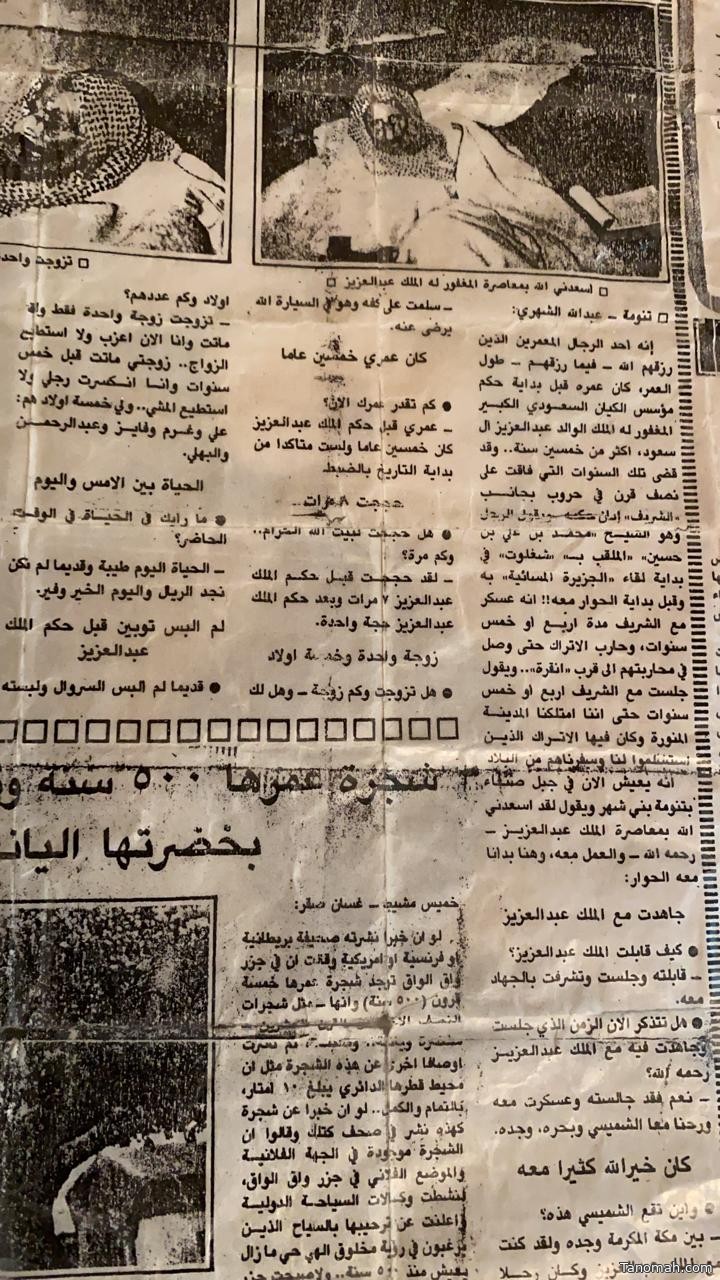 □ اسعدني الله بمعاصرة المغفور له الملك عبدالعزيز □
□ تزوجت واحدة
□ تنومة ـ عبدالله الشهري:
إنه احد الرجال المعمرين الذين
رزقهم الله ـ فيما رزقهم ـ طول
العمر، كان عمره قبل بداية حكم
مؤسس الكيان السعودي الكبير
المغفور له الملك الوالد عبدالعزيز ال
سعود، اكثر من خمسين سنة.. وقد
قضى تلك السنوات التي فاقت على
نصف قرن في حروب بجانب
«الشريف» إبان حكمه ـ ويقول الرجل
وهو الشيخ «محمد بن علي بن
حسين» «الملقب بـ» «شغلوت» في
بداية لقاء «الجزيرة المسائية» به
وقبل بداية الحوار معه!! انه عسكر
مع الشريف مدة اربع او خمس
سنوات، وحارب الاتراك حتى وصل
في محاربتهم الى قرب «انقرة».. ويقول
جلست مع الشريف اربع او خمس
سنوات حتى اننا امتلكنا المدينة
المنورة وكان فيها الاتراك الذين
استسلموا لنا وسفرناهم من البلاد
انه يعيش الان في جبل
بتنومة بني شهر ويقول لقد اسعدني
الله بمعاصرة الملك عبدالعزيز ـ
رحمه الله ـ والعمل معه، وهنا بدانا
معه الحوار:
جاهدت مع الملك عبدالعزيز
● كيف قابلت الملك عبدالعزيز؟
ـ قابلته وجلست وتشرفت بالجهاد
معه.
● هل تتذكر الان الزمن الذي جلست
وجاهدت فيه مع الملك عبدالعزيز
رحمه الله؟
ـ نعم فقد جالسته وعسكرت معه
ورحنا معا الشميسي وبحره، وجده.
كان خيرالله كثيرا معه
● واين تقع الشميسي هذه؟
ـ بين مكة المكرمة وجده ولقد كنت
وكان رجلا
ـ سلمت على كفه وهو في السيارة الله
يرضى عنه.
كان عمري خمسين عاما
● كم تقدر عمرك الان؟
ـ عمري قبل حكم الملك عبدالعزيز
كان خمسين عاما ولست متأكدا من
بداية التاريخ بالضبط
حججت ٨ مرات
● هل حججت لبيت الله الحرام..
وكم مرة؟
ـ لقد حججت قبل حكم الملك
عبدالعزيز ٧ مرات وبعد حكم الملك
عبدالعزيز حجة واحدة.
زوجة واحدة وخمسة اولاد
● هل تزوجت وكم زوجة ـ وهل لك
اولاد وكم عددهم؟
ـ تزوجت زوجة واحدة فقط
ماتت وانا الان اعزب ولا استطيع
الزواج.. زوجتي ماتت قبل خمس
سنوات وانا انكسرت رجلي ولا
استطيع المشي.. ولي خمسة اولاد هم:
علي وغرم وفايز وعبدالرحمن
والبهلي.
الحياة بين الامس واليوم
● ما رايك في الحياة في الوقت
الحاضر؟
ـ الحياة اليوم طيبة وقديما لم نكن
نجد الريال واليوم الخير وفير.
لم البس ثوبين قبل حكم الملك
عبدالعزيز
● قديما لم البس السروال ولبسته
شجرة عمرها ٥٠٠ سنة
بخضرتها اليان
خميس مشيط ـ غسان صقر:
لو ان خبرا نشرته صحيفة بريطانية
او فرنسية او امريكية وقالت ان في جزر
واق الواق توجد شجرة عمرها خمسة
قرون (٥٠٠ سنة) وانها ـ مثل شجرات
ثم نشرت
اوصافا اخرى عن هذه الشجرة مثل ان
محيط قطرها الدائري يبلغ ١٠ امتار،
بالتمام والكمال.. لو ان خبرا عن شجرة
كهذه نشر في صحف كتلك وقالوا ان
الشجرة موجودة في الجهة الفلانية
والموضع الفلاني في جزر واق الواق،
لنشطت وكالات السياحة الدولية
واعلنت عن ترحيبها بالسياح الذين
يرغبون في رؤية مخلوق الهي حي مازال
يعيش منذ ٥٠٠ سنة.. ولاصبحت جزر
Tanomah.com